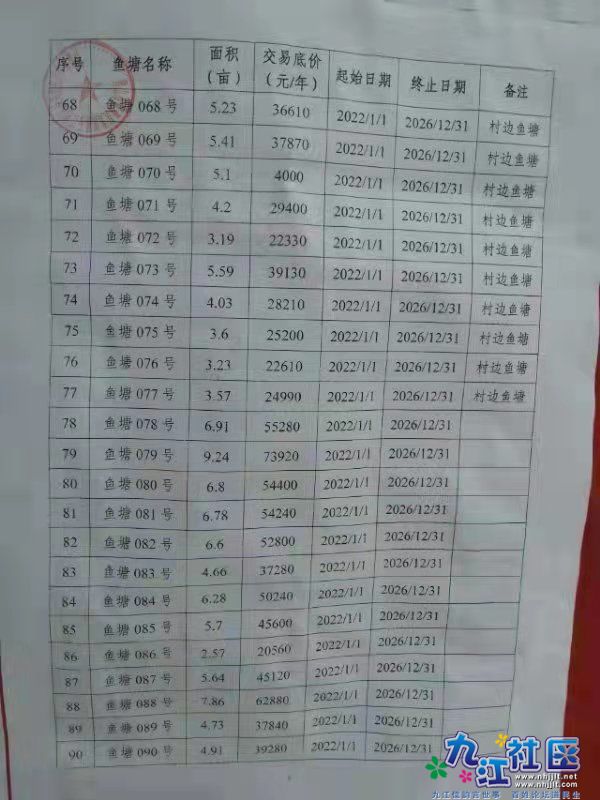 序号 鱼塘名称 面积（亩） 交易底价（元/年） 起始日期 终止日期 备注
68 鱼塘 068 号 5.23 36610 2022/1/1 2026/12/31 村边鱼塘
69 鱼塘 069 号 5.41 37870 2022/1/1 2026/12/31 村边鱼塘
70 鱼塘 070 号 5.1 4000 2022/1/1 2026/12/31 村边鱼塘
71 鱼塘 071 号 4.2 29400 2022/1/1 2026/12/31 村边鱼塘
72 鱼塘 072 号 3.19 22330 2022/1/1 2026/12/31 村边鱼塘
73 鱼塘 073 号 5.59 39130 2022/1/1 2026/12/31 村边鱼塘
74 鱼塘 074 号 4.03 28210 2022/1/1 2026/12/31 村边鱼塘
75 鱼塘 075 号 3.6 25200 2022/1/1 2026/12/31 村边鱼塘
76 鱼塘 076 号 3.23 22610 2022/1/1 2026/12/31 村边鱼塘
77 鱼塘 077 号 3.57 24990 2022/1/1 2026/12/31 村边鱼塘
78 鱼塘 078 号 6.91 55280 2022/1/1 2026/12/31
79 鱼塘 079 号 9.24 73920 2022/1/1 2026/12/31
80 鱼塘 080 号 6.8 54400 2022/1/1 2026/12/31
81 鱼塘 081 号 6.78 54240 2022/1/1 2026/12/31
82 鱼塘 082 号 6.6 52800 2022/1/1 2026/12/31
83 鱼塘 083 号 4.66 37280 2022/1/1 2026/12/31
84 鱼塘 084 号 6.28 50240 2022/1/1 2026/12/31
85 鱼塘 085 号 5.7 45600 2022/1/1 2026/12/31
86 鱼塘 086 号 2.57 20560 2022/1/1 2026/12/31
87 鱼塘 087 号 5.64 45120 2022/1/1 2026/12/31
88 鱼塘 088 号 7.86 62880 2022/1/1 2026/12/31
89 鱼塘 089 号 4.73 37840 2022/1/1 2026/12/31
90 鱼塘 090 号 4.91 39280 2022/1/1 2026/12/31
九江社区
www.nhjjlt.net